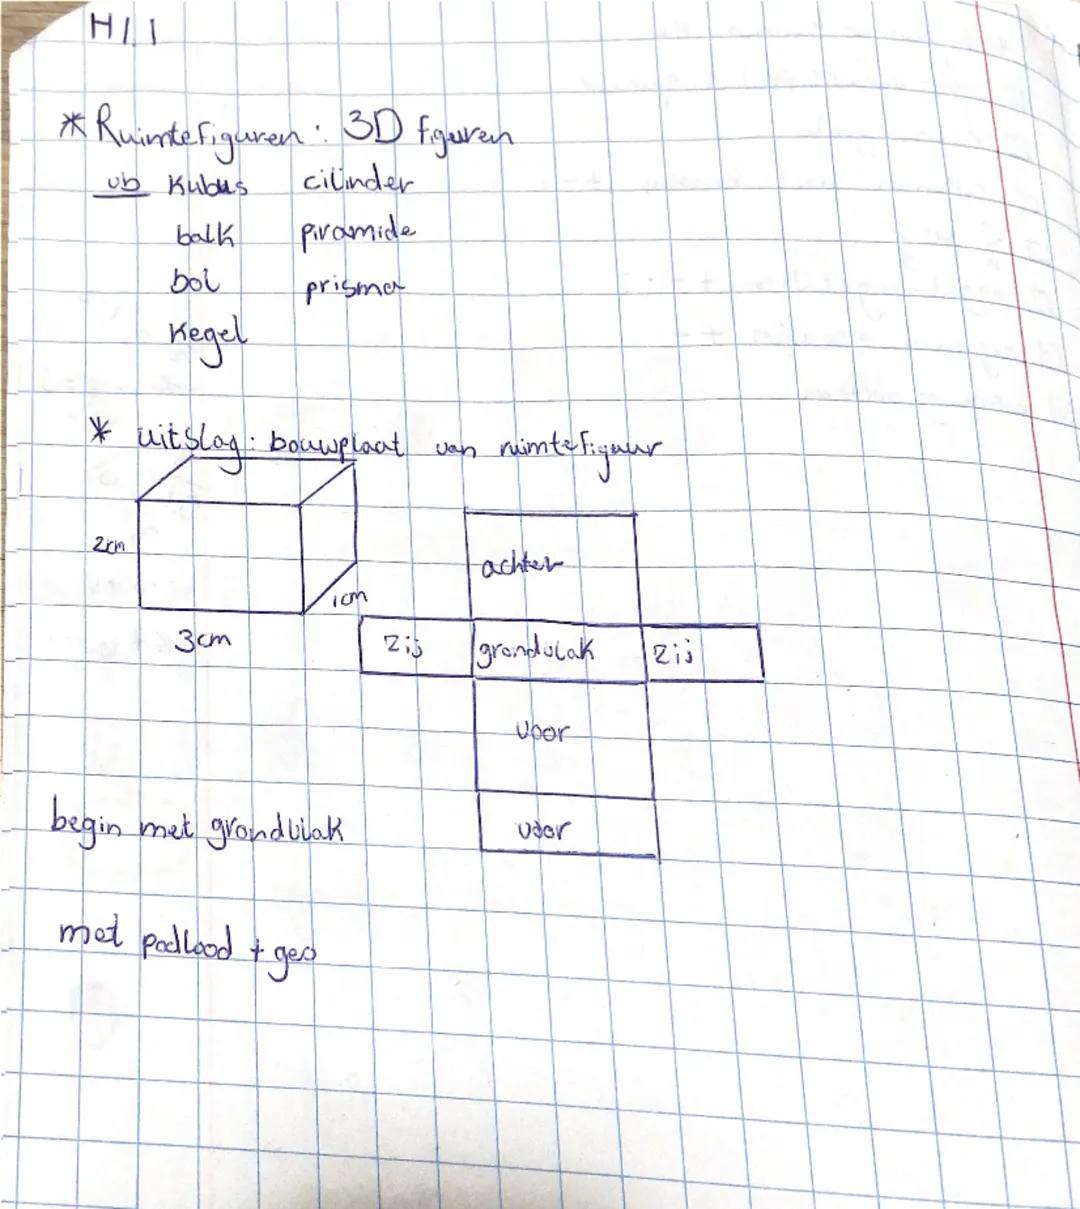 H11
* Ruimtefiguren: 3D figuren
vb Kubus cilinder
balk piramide
bol prisma
Kegel
* uitslag: bouwplaat van ruimtefiguur
achter
2cm
1cm
3cm
zij grondvlak zij
voor
begin met grondvlak
voor
met podlood + geo